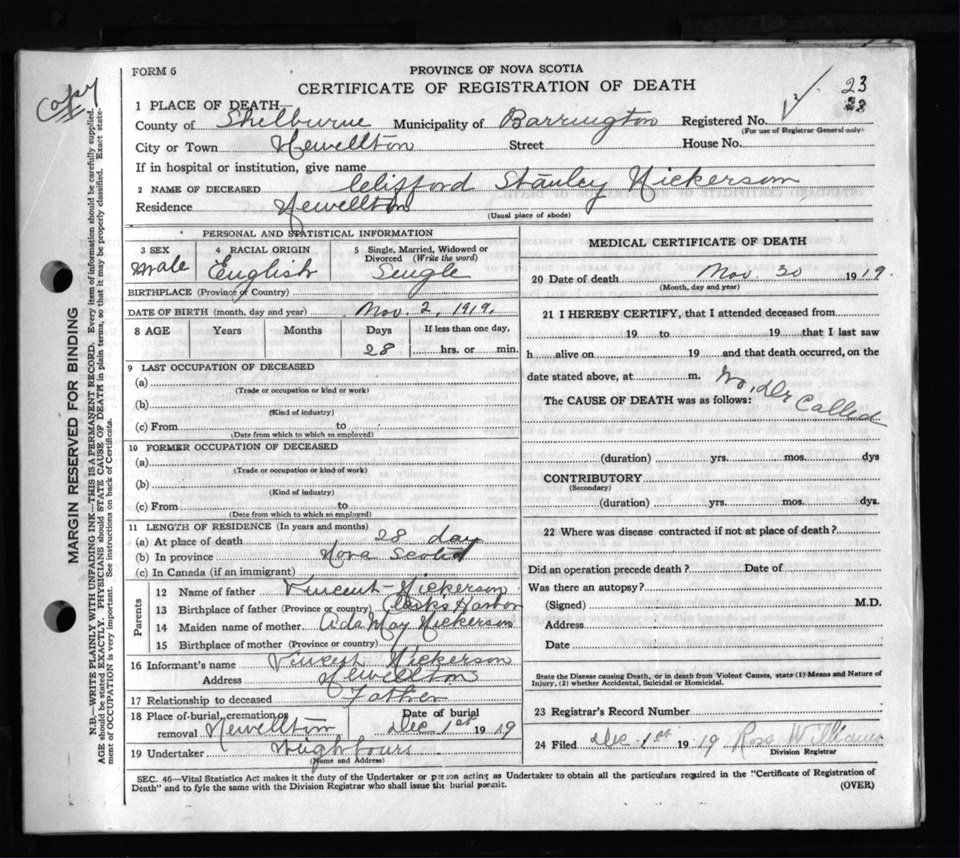 FORM 6
PROVINCE OF NOVA SCOTIA
CERTIFICATE OF REGISTRATION OF DEATH
23
Copy
1 PLACE OF DEATH—
County of Shelburne Municipality of Barrington Registered No.
(For use of Registrar General only)
City or Town Newellton Street House No.
If in hospital or institution, give name
2 NAME OF DECEASED Clifford Stanley Nickerson
Residence Newellton
(Usual place of abode)
PERSONAL AND STATISTICAL INFORMATION
3 SEX Male
4 RACIAL ORIGIN English
5 Single, Married, Widowed or Divorced (Write the word) Single
BIRTHPLACE (Province or Country)
DATE OF BIRTH (month, day and year) Nov. 2, 1919.
8 AGE Years Months Days If less than one day,
28 hrs. or min.
9 LAST OCCUPATION OF DECEASED
(a)
(Trade or occupation or kind or work)
(b)
(Kind of industry)
(c) From to
(Date from which to which so employed)
10 FORMER OCCUPATION OF DECEASED
(a)
(Trade or occupation or kind of work)
(b)
(Kind of industry)
(c) From to
(Date from which to which so employed)
11 LENGTH OF RESIDENCE (In years and months)
(a) At place of death 28 day
(b) In province Nova Scotia
(c) In Canada (if an immigrant)
Parents
12 Name of father Vincent Nickerson
13 Birthplace of father (Province or country) Clarks Harbor
14 Maiden name of mother Ada May Nickerson
15 Birthplace of mother (Province or country)
16 Informant's name Vincent Nickerson
Address Newellton
17 Relationship to deceased Father
18 Place of burial, cremation or removal Newellton
Date of burial Dec 1st 1919
19 Undertaker Neighbours
(Name and Address)
MEDICAL CERTIFICATE OF DEATH
20 Date of death Nov. 30 1919.
(Month, day and year)
21 I HEREBY CERTIFY, that I attended deceased from
19 to 19 that I last saw
h alive on 19 and that death occurred, on the
date stated above, at m.
The CAUSE OF DEATH was as follows: No. Dr Called
(duration) yrs. mos. dys
CONTRIBUTORY
(Secondary)
(duration) yrs. mos. dys.
22 Where was disease contracted if not at place of death?
Did an operation precede death? Date of
Was there an autopsy?
(Signed) M.D.
Address
Date
State the Disease causing Death, or in death from Violent Causes, state (1) Means and Nature of
Injury, (2) whether Accidental, Suicidal or Homicidal.
23 Registrar's Record Number
24 Filed Dec 1st 1919 Ross Williams
Division Registrar
SEC. 46—Vital Statistics Act makes it the duty of the Undertaker or person acting as Undertaker to obtain all the particulars required in the "Certificate of Registration of
Death" and to fyle the same with the Division Registrar who shall issue the burial permit.
(OVER)
MARGIN RESERVED FOR BINDING
N.B.—WRITE PLAINLY WITH UNFADING INK—THIS IS A PERMANENT RECORD. Every item of information should be carefully supplied.
AGE should be stated EXACTLY. PHYSICIANS should STATE CAUSE OF DEATH in plain terms, so that it may be properly classified. Exact state-
ment of OCCUPATION is very important. See instructions on back of Certificate.